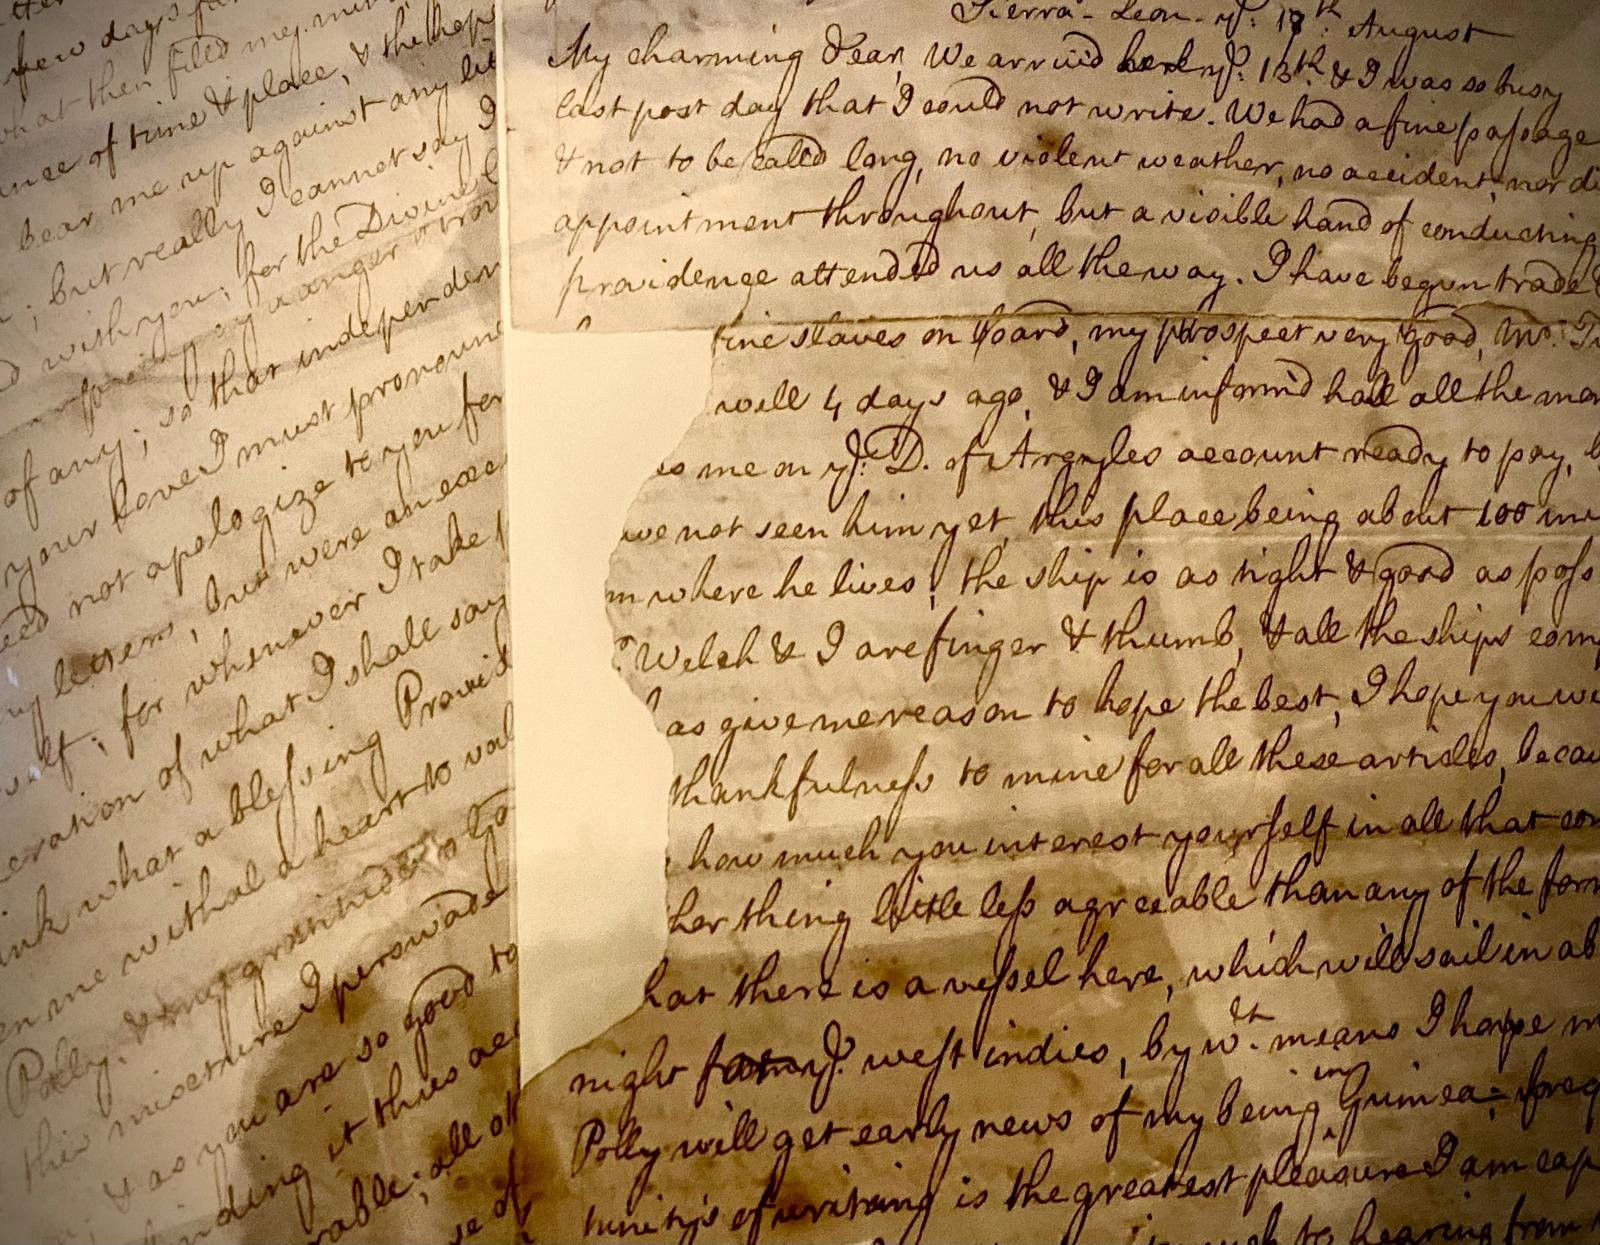 few days
what then filled my min
ence of time & place, & the hop
bear me up against any lit
; but really I cannot say I
d with you; for the Divine
of any; so that independen
your love I must pronoun
eed not apologize to you for
my letters, but were an exce
self; for whenever I take
eration of what I shall say
ink what a blessing Provid
en me withal a heart to val
Polly, & my gratitude to
their miscture I perswade
& as you are so good to
nding it this acc
rable; all ot
se of
Sierra-Leon ye: 18th: August
My charming Dear, We arrived here ye: 13th: & I was so busy
last post day that I could not write. We had a fine passage
& not to be called long, no violent weather, no accident, nor di
appointment throughout, but a visible hand of conducting
providence attended us all the way. I have begun trade
fine slaves on board, my prospect very good, Mr: T
well 4 days ago, & I am inform'd had all the mon
es me on ye: D. of Argyles account ready to pay, b
ave not seen him yet, this place being about 100 mi
m where he lives; the ship is as tight & good as poss
r: Welch & I are finger & thumb, & all the ships comp
as give me reason to hope the best, I hope you wi
thankfulness to mine for all these articles, becau
how much you interest yourself in all that con
her thing little less agreeable than any of the form
hat there is a vessel here, which will sail in ab
night for ye: west indies, by wch: means I hope m
Polly will get early news of my being in Guinea; freq
tunitys of writing is the greatest pleasure I am cap
to hearing from